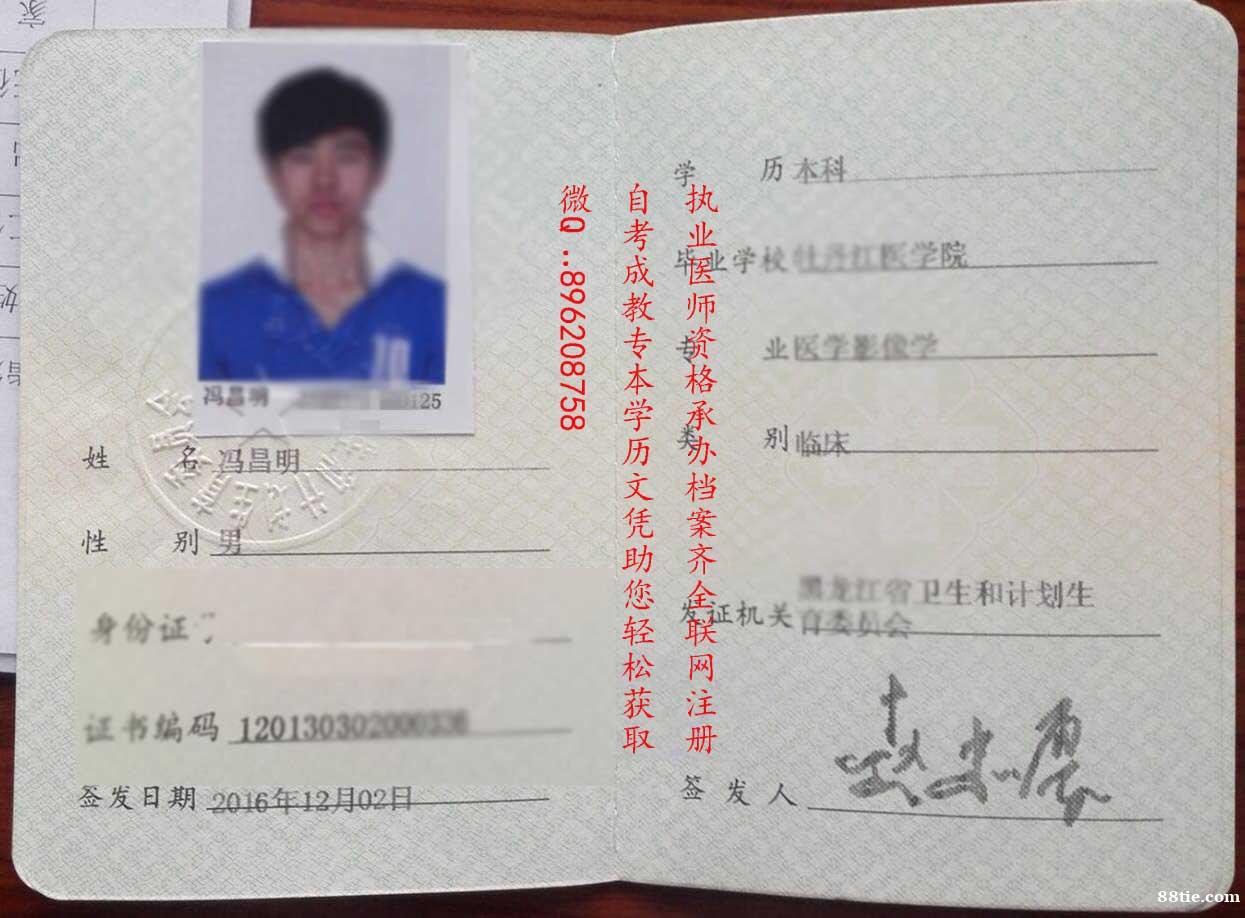 冯昌明
0125
姓 名 冯昌明
性 别 男
身份证
证书编码 120130302000336
签发日期 2016年12月02日
学 历 本科
毕业学校 牡丹江医学院
专 业 医学影像学
类 别 临床
发证机关 黑龙江省卫生和计划生
育委员会
签发人
执业医师资格承办档案齐全联网注册
自考成教专本学历文凭助您轻松获取
微Q..896208758
88tie.com